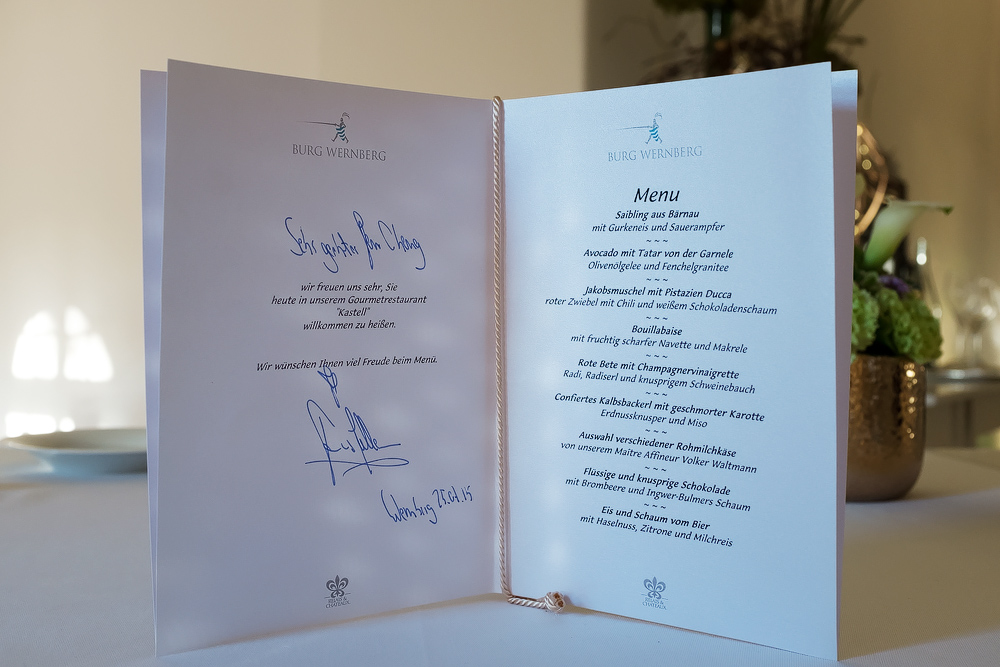 BURG WERNBERG
Sehr geehrter Herr Cheong
wir freuen uns sehr, Sie
heute in unserem Gourmetrestaurant
"Kastell"
willkommen zu heißen.
Wir wünschen Ihnen viel Freude beim Menü.
Wernberg 25.07.15
RELAIS &
CHATEAUX
BURG WERNBERG
Menu
Saibling aus Bärnau
mit Gurkeneis und Sauerampfer
~ ~ ~
Avocado mit Tatar von der Garnele
Olivenölgelee und Fenchelgranitee
~ ~ ~
Jakobsmuschel mit Pistazien Ducca
roter Zwiebel mit Chili und weißem Schokoladenschaum
~ ~ ~
Bouillabaise
mit fruchtig scharfer Navette und Makrele
~ ~ ~
Rote Bete mit Champagnervinaigrette
Radi, Radiserl und knusprigem Schweinebauch
~ ~ ~
Confiertes Kalbsbackerl mit geschmorter Karotte
Erdnussknusper und Miso
~ ~ ~
Auswahl verschiedener Rohmilchkäse
von unserem Maitre Affineur Volker Waltmann
~ ~ ~
Flüssige und knusprige Schokolade
mit Brombeere und Ingwer-Bulmers Schaum
~ ~ ~
Eis und Schaum vom Bier
mit Haselnuss, Zitrone und Milchreis
RELAIS &
CHATEAUX